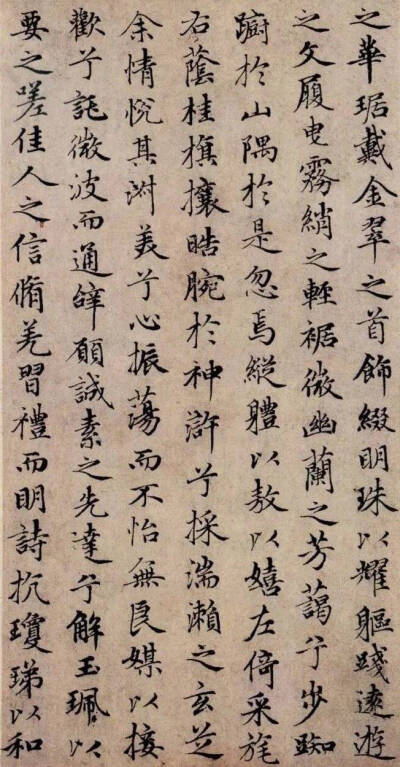 之華琚戴金翠之首飾綴明珠以耀軀踐遠遊
之文履曳霧綃之輕裾微幽蘭之芳藹兮步踟
蹰於山隅於是忽焉縱體以敖以嬉左倚采旄
右蔭桂旗攘晧腕於神滸兮採湍瀨之玄芝
余情悅其淑美兮心振蕩而不怡無良媒以接
歡兮託微波而通辭願誠素之先達兮解玉珮以
要之嗟佳人之信脩羌習禮而明詩抗瓊珶以和